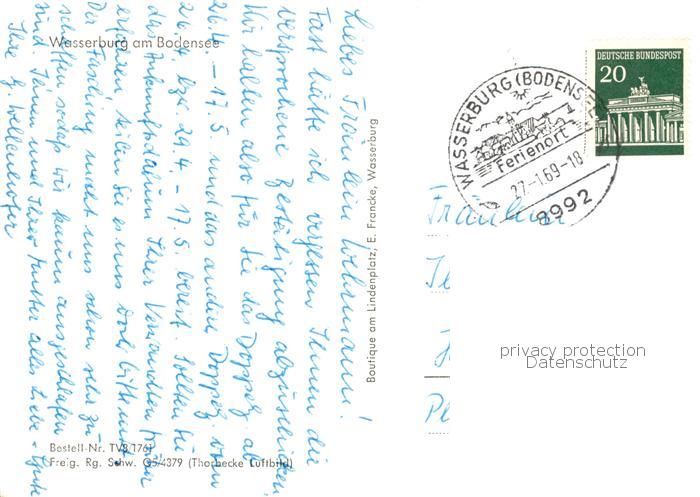 Wasserburg am Bodensee
Liebes Fräulein
Fast hätte ich vergessen Ihnen die
versprochene Bestätigung abzuschicken.
Wir halten also für Sie das Doppelz. ab
26.4. – 17.5 und das andere Doppelz. vom
26.4. bzw. 29.4 – 17.5. bereit. Sollten Sie
das Ankunftsdatum Ihrer Verwandten früher
erfahren teilen Sie es uns doch bitte mit.
Der Fasching macht uns schon sehr zu
schaffen sodaß wir kaum ausgeschlafen
sind. Ihnen und Ihrer Mutter alles Liebe + Gute
Ihre
Bestell-Nr. TVB 1761
Freig. Rg. Schw. G5/4379 (Thorbecke Luftbild)
Boutique am Lindenplatz, E. Francke, Wasserburg
DEUTSCHE BUNDESPOST
20
WASSERBURG (BODENSEE)
Ferienort
27.-1.69-18
8992
Fräulein
privacy protection
Datenschutz